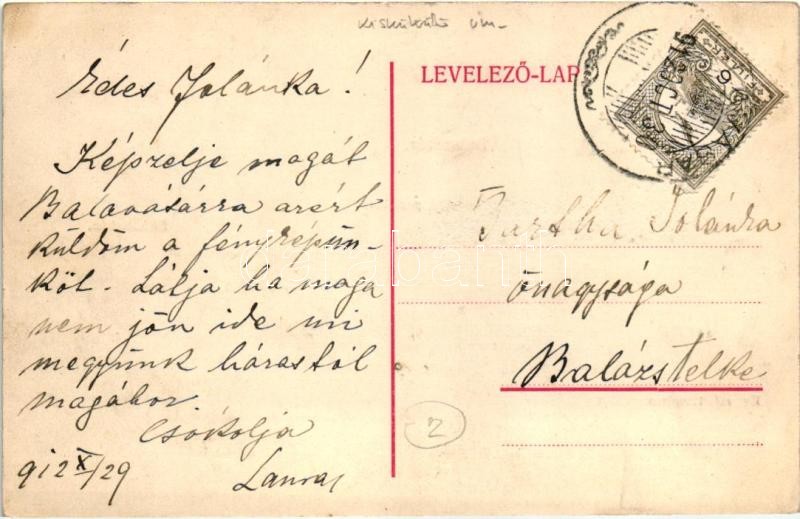 Kisküküllő vm.
Édes Jolánka!
Képzelje magát
Balavásárra azért
küldöm a fényképün-
köt. Látja ha maga
nem jön ide mi
megyünk hárastól
magához.
Csókolja
912 X/29
LEVELEZŐ-LAP
Bartha Jolánka
őnagysága
Balázstelke
2